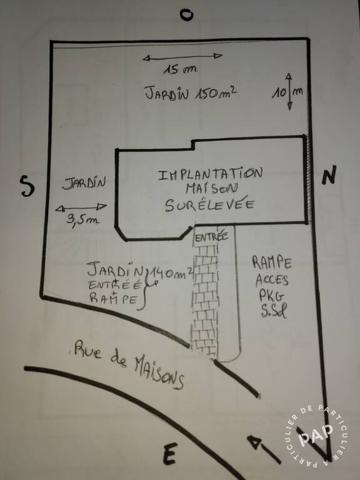 O
15 m
JARDIN 150 m²
10 m
S
JARDIN
3,5m
IMPLANTATION
MAISON
SURÉLEVÉE
N
ENTRÉE
JARDIN
ENTRÉE
+
RAMPE
140m²
RAMPE
ACCES
PKG
S.Sol
Rue de MAISONS
E
PAP
DE PARTICULIER À PARTICULIER